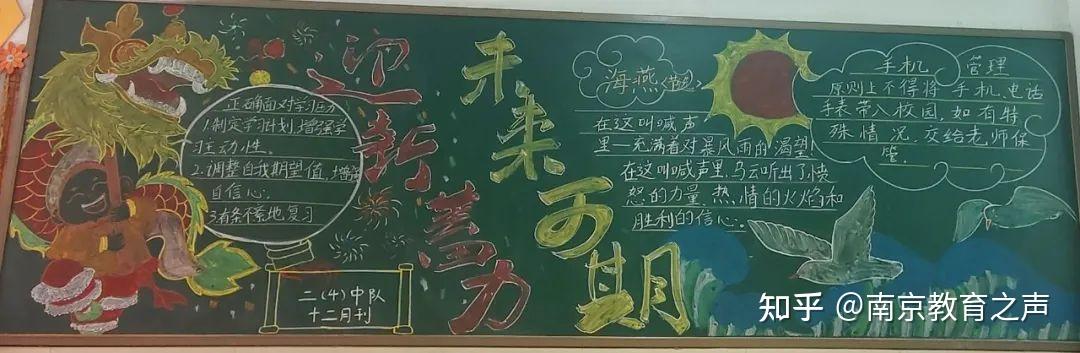 正确面对学习压力
1.制定学习计划,增强学
习主动性。
2.调整自我期望值,增强
自信心。
3.有条不紊地复习
二(4)中队
十二月刊
迎新蓄力
未来可期
海燕(节选)
在这叫喊声
里—充满着对暴风雨的渴望!
在这叫喊声里,乌云听出了愤
怒的力量、热情的火焰和
胜利的信心。
手机 管理
原则上不得将手机、电话
手表带入校园,如有特
殊情况,交给老师保
管。
知乎 @南京教育之声